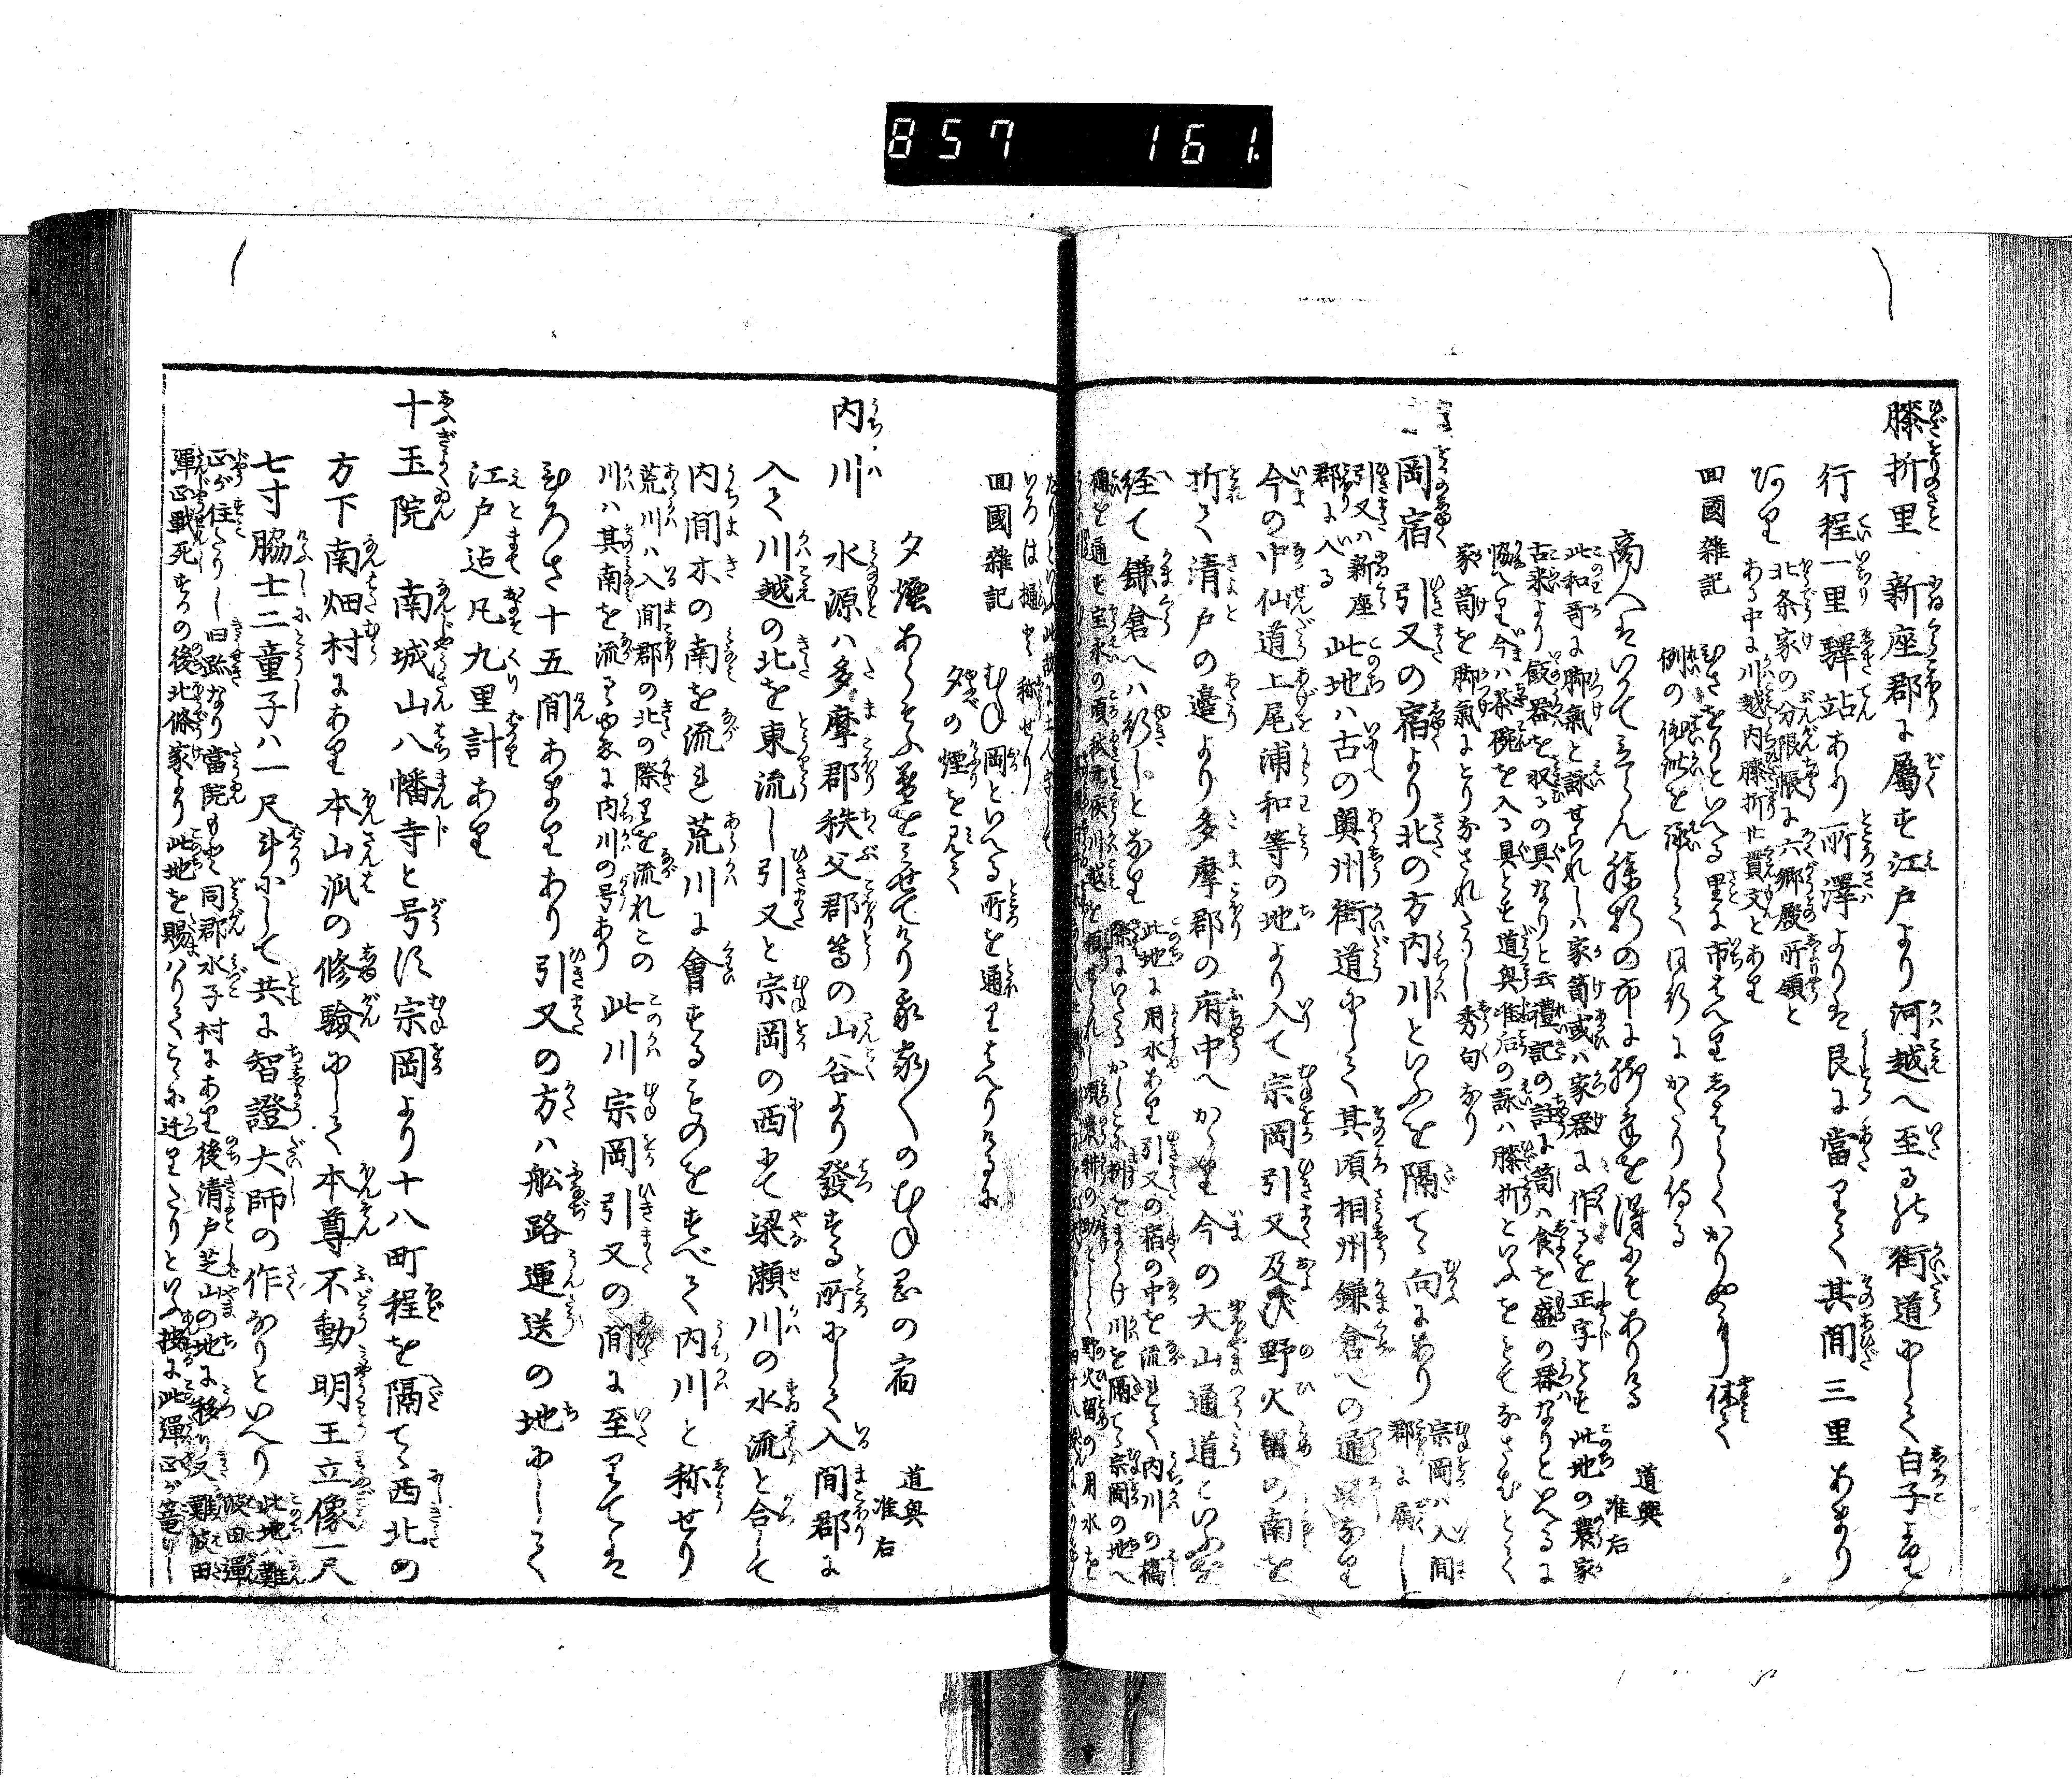 857 161.
膝折里 新座郡に属す江戸より河越へ至るの街道にして白子よりも
行程一里驛站あり所澤よりは艮に當りて其間三里あまり
あり
北条家の分限帳に六郷殿所領と
ある中に川越内膝折廿貫文とあり
回國雜記
ひざをりといへる里に市はべりしばらくかりやに休て
例の俳諧を詠じて同行にかたり侍る
商人はいかで立らん膝折の市に脚氣を得るにぞありける 道興准后
此和哥に脚氣と詠せられしハ家笥或ハ家器に作るを正字とす此地の農家
古来より飯器を収るの具なりと云禮記の註に笥ハ食を盛の器なりといへるに
協へり今ハ茶碗を入る具とす道興准后の詠ハ膝折といふをとてなさむとて
家笥を脚氣にとりなされたりし秀句なり
岡宿 引又の宿より北の方内川といふを隔てゝ向にあり
宗岡ハ入間
郡に属し
引又ハ新座
郡に入る
此地ハ古の奥州街道にして其頃相州鎌倉への通路なり
今の中仙道上尾浦和等の地より入て宗岡引又及び野火留の南を
折て清戸の邉より多摩郡の府中へかゝり今の大山通道といふを
経て鎌倉へハ行しとなり
此地に用水あり引又の宿の中を流れて内川の橋
際にいたるかしこに
川を隔てゝ宗岡の地へ
いろは樋と称せり
回國雜記
むね岡といへる所を通りはべりけるに
夕の煙を見て
夕煙あらそふ暮を見せてけり我家々のむね岡の宿 道興准后
内川 水源ハ多摩郡秩父郡等の山谷より發する所にして入間郡に
入て川越の北を東流し引又と宗岡の西にて梁瀬川の水流と合して
内間木の南を流れ荒川に會するものをすべて内川と称せり
荒川ハ入間郡の北の際を流れこの
川ハ其南を流るゝ故に内川の号あり
此川宗岡引又の間に至りては
ひろさ十五間あまりあり引又の方ハ舩路運送の地にして
江戸迠凡九里計あり
十玉院 南城山八幡寺と号す宗岡より十八町程を隔てゝ西北の
方下南畑村にあり本山派の修驗にして本尊不動明王立像一尺
七寸脇士二童子ハ一尺計にして共に智證大師の作なりといへり
此地ハ難
波田彈
正が住たりし旧跡なり當院もと同郡水子村にあり後清戸芝山の地に移り又難波田
彈正戰死するの後北條家より此地を賜ハりてこゝに迁りたりといふ按に此彈正が篭りし